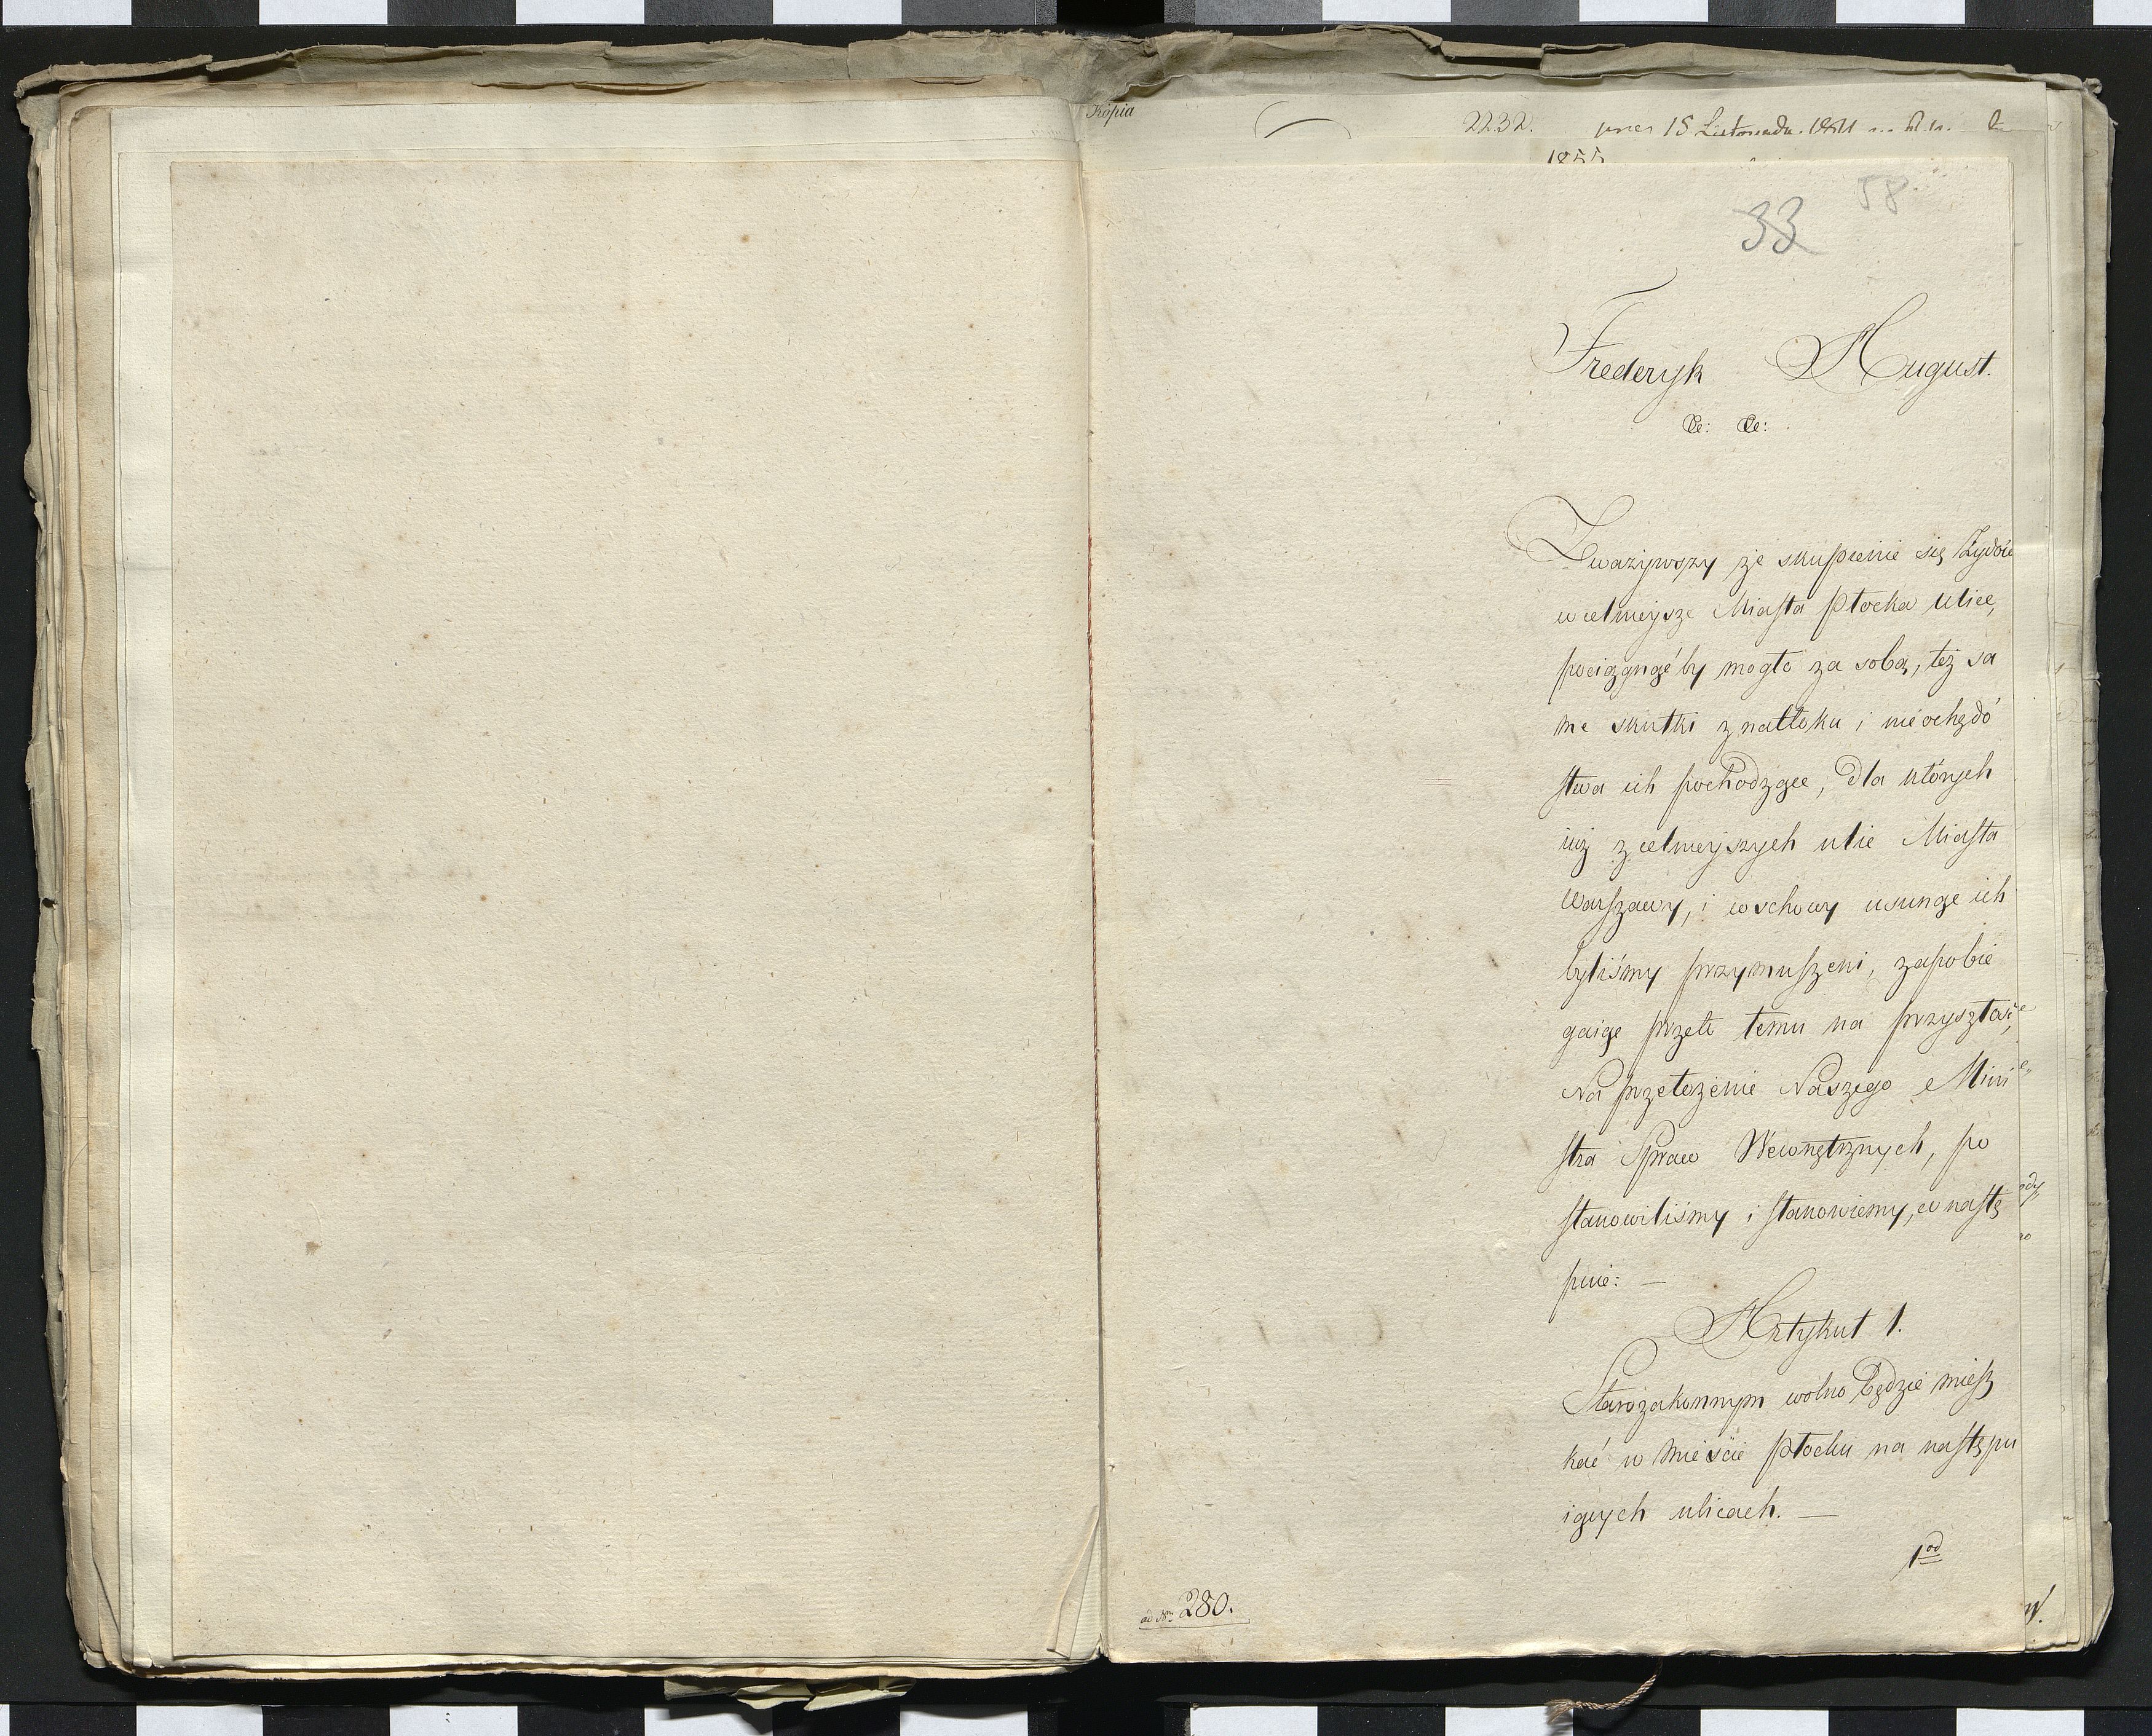 Kopia
2232.
1855
58
33
Fryderyk August.
&c: &c:
Zwazywszy że skupienie się Żydów
w celnieysze Miasta Płocka ulice,
pociągnąć by mogło za sobą, też sa
me skutki z natłoku i nieochędó
stwa ich pochodzące, dla których
iuż z celnieyszych ulic Miasta
Warszawy, i Wschowy usunąć ich
byliśmy przymuszeni, zapobie
gaiąc przeto temu na przyszłość,
Na przełożenie Naszego Mini
stra Spraw Wewnętrznych, po
stanowiliśmy i stanowiemy, co nastę
puie: —
Artykuł 1.
Starozakonnym wolno będzie miesz
kać w mieście Płocku na nastę pu
iących ulicach. —
1od
ad Nm 280.